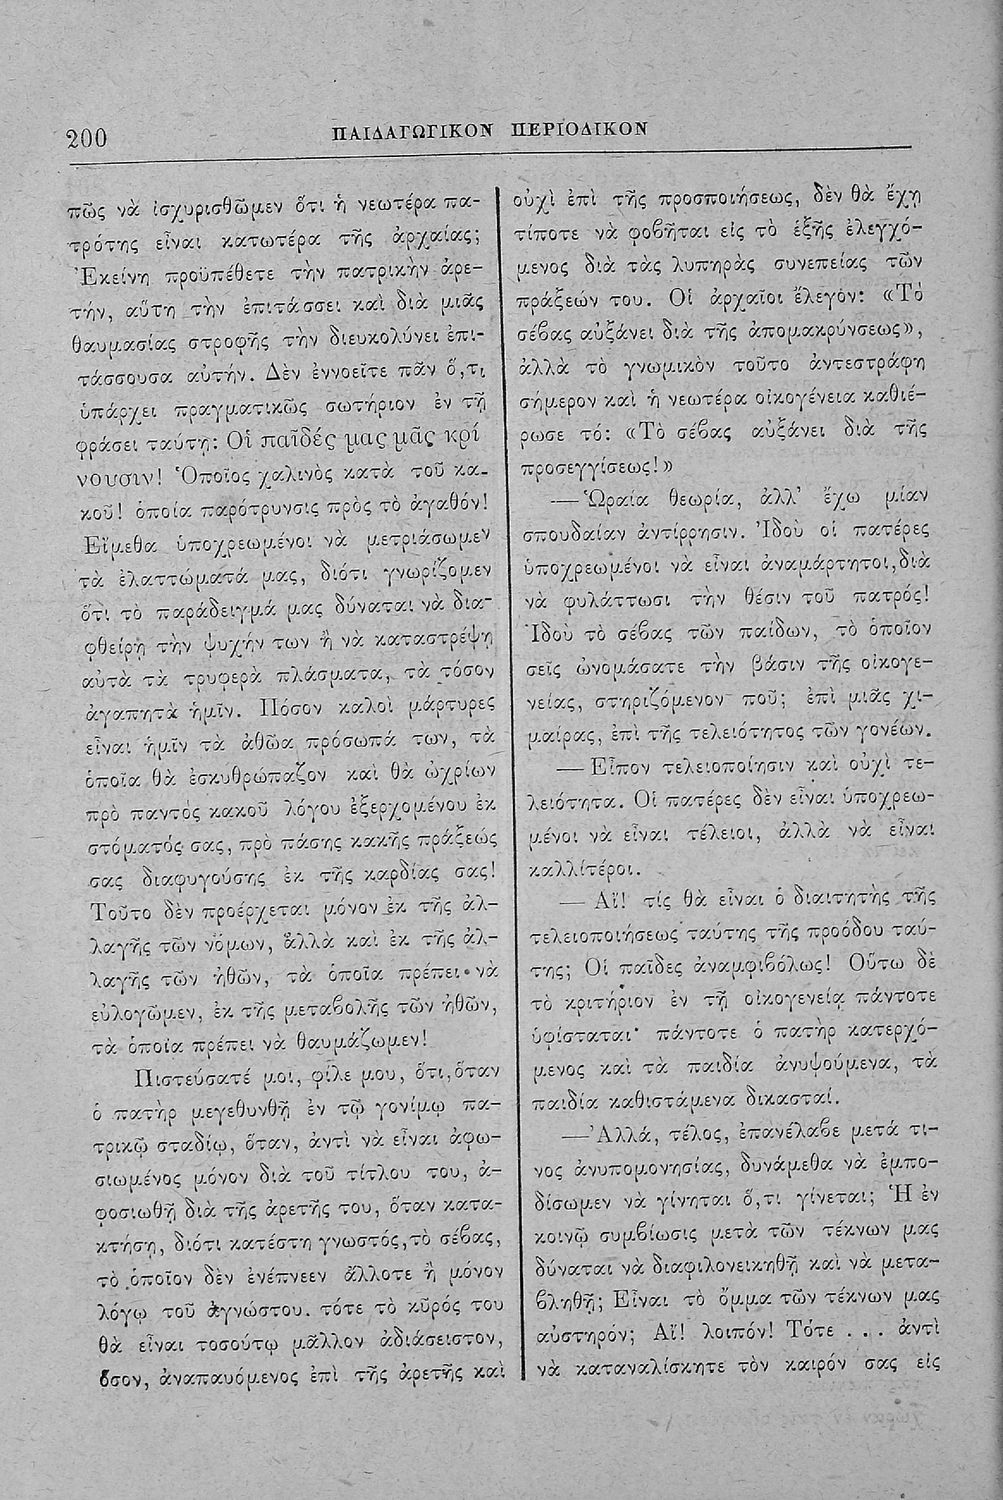 200
ΠΑΙΔΑΓΩΓΙΚΟΝ ΠΕΡΙΟΔΙΚΟΝ
πῶς νὰ ἰσχυρισθῶμεν ὅτι ἡ νεωτέρα πα-
τρότης εἶναι κατωτέρα τῆς ἀρχαίας;
Ἐκείνη προϋπέθετε τὴν πατρικὴν ἀρε-
τήν, αὕτη τὴν ἐπιτάσσει καὶ διὰ μιᾶς
θαυμασίας στροφῆς τὴν διευκολύνει ἐπι-
τάσσουσα αὐτήν. Δὲν ἐννοεῖτε πᾶν ὅ,τι
ὑπάρχει πραγματικῶς σωτήριον ἐν τῇ
φράσει ταύτῃ: Οἱ παῖδές μας μᾶς κρί
νουσιν! Ὁποῖος χαλινὸς κατὰ τοῦ κα-
κοῦ! ὁποία παρότρυνσις πρὸς τὸ ἀγαθόν!
Εἴμεθα ὑποχρεωμένοι νὰ μετριάσωμεν
τὰ ἐλαττώματά μας, διότι γνωρίζομεν
ὅτι τὸ παράδειγμά μας δύναται νὰ δια-
φθείρῃ τὴν ψυχήν των ἢ νὰ καταστρέψῃ
αὐτὰ τὰ τρυφερὰ πλάσματα, τὰ τόσον
ἀγαπητὰ ἡμῖν. Πόσον καλοὶ μάρτυρες
εἶναι ἡμῖν τὰ ἀθῶα πρόσωπά των, τὰ
ὁποῖα θὰ ἐσκυθρώπαζον καὶ θὰ ὠχρίων
πρὸ παντὸς κακοῦ λόγου ἐξερχομένου ἐκ
στόματός σας, πρὸ πάσης κακῆς πράξεώς
σας διαφυγούσης ἐκ τῆς καρδίας σας!
Τοῦτο δὲν προέρχεται μόνον ἐκ τῆς ἀλ-
λαγῆς τῶν νόμων, ἀλλὰ καὶ ἐκ τῆς ἀλ-
λαγῆς τῶν ἠθῶν, τὰ ὁποῖα πρέπει νὰ
εὐλογῶμεν, ἐκ τῆς μεταβολῆς τῶν ἠθῶν,
τὰ ὁποῖα πρέπει νὰ θαυμάζωμεν!
Πιστεύσατέ μοι, φίλε μου, ὅτι, ὅταν
ὁ πατὴρ μεγεθυνθῇ ἐν τῷ γονίμῳ πα-
τρικῷ σταδίῳ, ὅταν, ἀντὶ νὰ εἶναι ἀφω-
σιωμένος μόνον διὰ τοῦ τίτλου του, ἀ-
φοσιωθῇ διὰ τῆς ἀρετῆς του, ὅταν κατα-
κτήσῃ, διότι κατέστη γνωστός, τὸ σέβας,
τὸ ὁποῖον δὲν ἐνέπνεεν ἄλλοτε ἢ μόνον
λόγῳ τοῦ ἀγνώστου. τότε τὸ κῦρός του
θὰ εἶναι τοσούτῳ μᾶλλον ἀδιάσειστον,
ὅσον, ἀναπαυόμενος ἐπὶ τῆς ἀρετῆς καὶ
οὐχὶ ἐπὶ τῆς προσποιήσεως, δὲν θὰ ἔχῃ
τίποτε νὰ φοβῆται εἰς τὸ ἑξῆς ἐλεγχό-
μενος διὰ τὰς λυπηρὰς συνεπείας τῶν
πράξεών του. Οἱ ἀρχαῖοι ἔλεγον: «Τὸ
σέβας αὐξάνει διὰ τῆς ἀπομακρύνσεως»,
ἀλλὰ τὸ γνωμικὸν τοῦτο ἀντεστράφη
σήμερον καὶ ἡ νεωτέρα οἰκογένεια καθιέ-
ρωσε τό: «Τὸ σέβας αὐξάνει διὰ τῆς
προσεγγίσεως!»
—Ὡραία θεωρία, ἀλλ' ἔχω μίαν
σπουδαίαν ἀντίρρησιν. Ἰδοὺ οἱ πατέρες
ὑποχρεωμένοι νὰ εἶναι ἀναμάρτητοι, διὰ
νὰ φυλάττωσι τὴν θέσιν τοῦ πατρός!
Ἰδοὺ τὸ σέβας τῶν παίδων, τὸ ὁποῖον
σεῖς ὠνομάσατε τὴν βάσιν τῆς οἰκογε-
νείας, στηριζόμενον ποῦ; ἐπὶ μιᾶς χι-
μαίρας, ἐπὶ τῆς τελειότητος τῶν γονέων.
—Εἶπον τελειοποίησιν καὶ οὐχὶ τε-
λειότητα. Οἱ πατέρες δὲν εἶναι ὑποχρεω-
μένοι νὰ εἶναι τέλειοι, ἀλλὰ νὰ εἶναι
καλλίτεροι.
— Αἴ! τίς θὰ εἶναι ὁ διαιτητὴς τῆς
τελειοποιήσεως ταύτης τῆς προόδου ταύ-
της; Οἱ παῖδες ἀναμφιβόλως! Οὕτω δὲ
τὸ κριτήριον ἐν τῇ οἰκογενείᾳ πάντοτε
ὑφίσταται· πάντοτε ὁ πατὴρ κατερχό-
μενος καὶ τὰ παιδία ἀνυψούμενα, τὰ
παιδία καθιστάμενα δικασταί.
—Ἀλλά, τέλος, ἐπανέλαβε μετά τι-
νος ἀνυπομονησίας, δυνάμεθα νὰ ἐμπο-
δίσωμεν νὰ γίνηται ὅ,τι γίνεται; Ἡ ἐν
κοινῷ συμβίωσις μετὰ τῶν τέκνων μας
δύναται νὰ διαφιλονεικηθῇ καὶ νὰ μετα-
βληθῇ; Εἶναι τὸ ὄμμα τῶν τέκνων μας
αὐστηρόν; Αἴ! λοιπόν! Τότε . . . ἀντὶ
νὰ καταναλίσκητε τὸν καιρόν σας εἰς